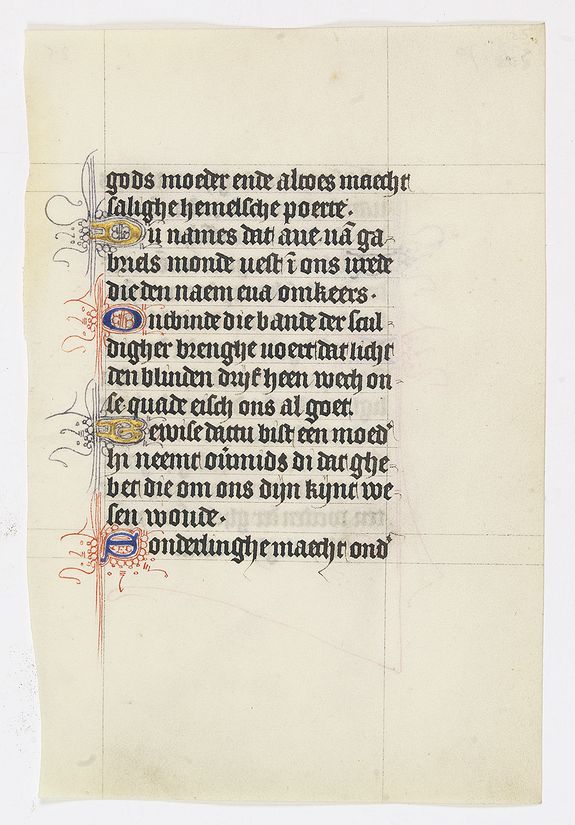 gods moeder ende altoes maecht
salighe hemelsche poerte.
Du names dat aue uā ga
briels monde uest ī ons vrede
die den naem eua omkeers.
Ontbinde die bande der scul
digher brenghe uoert dat licht
den blinden drijf heen wech on
se quade eisch ons al goet.
Bewise dattu bist een moedʳ
hi neemt oūmids di dat ghe
bet die om ons dijn kijnt we
sen woude.
Sonderlinghe maecht ondʳ